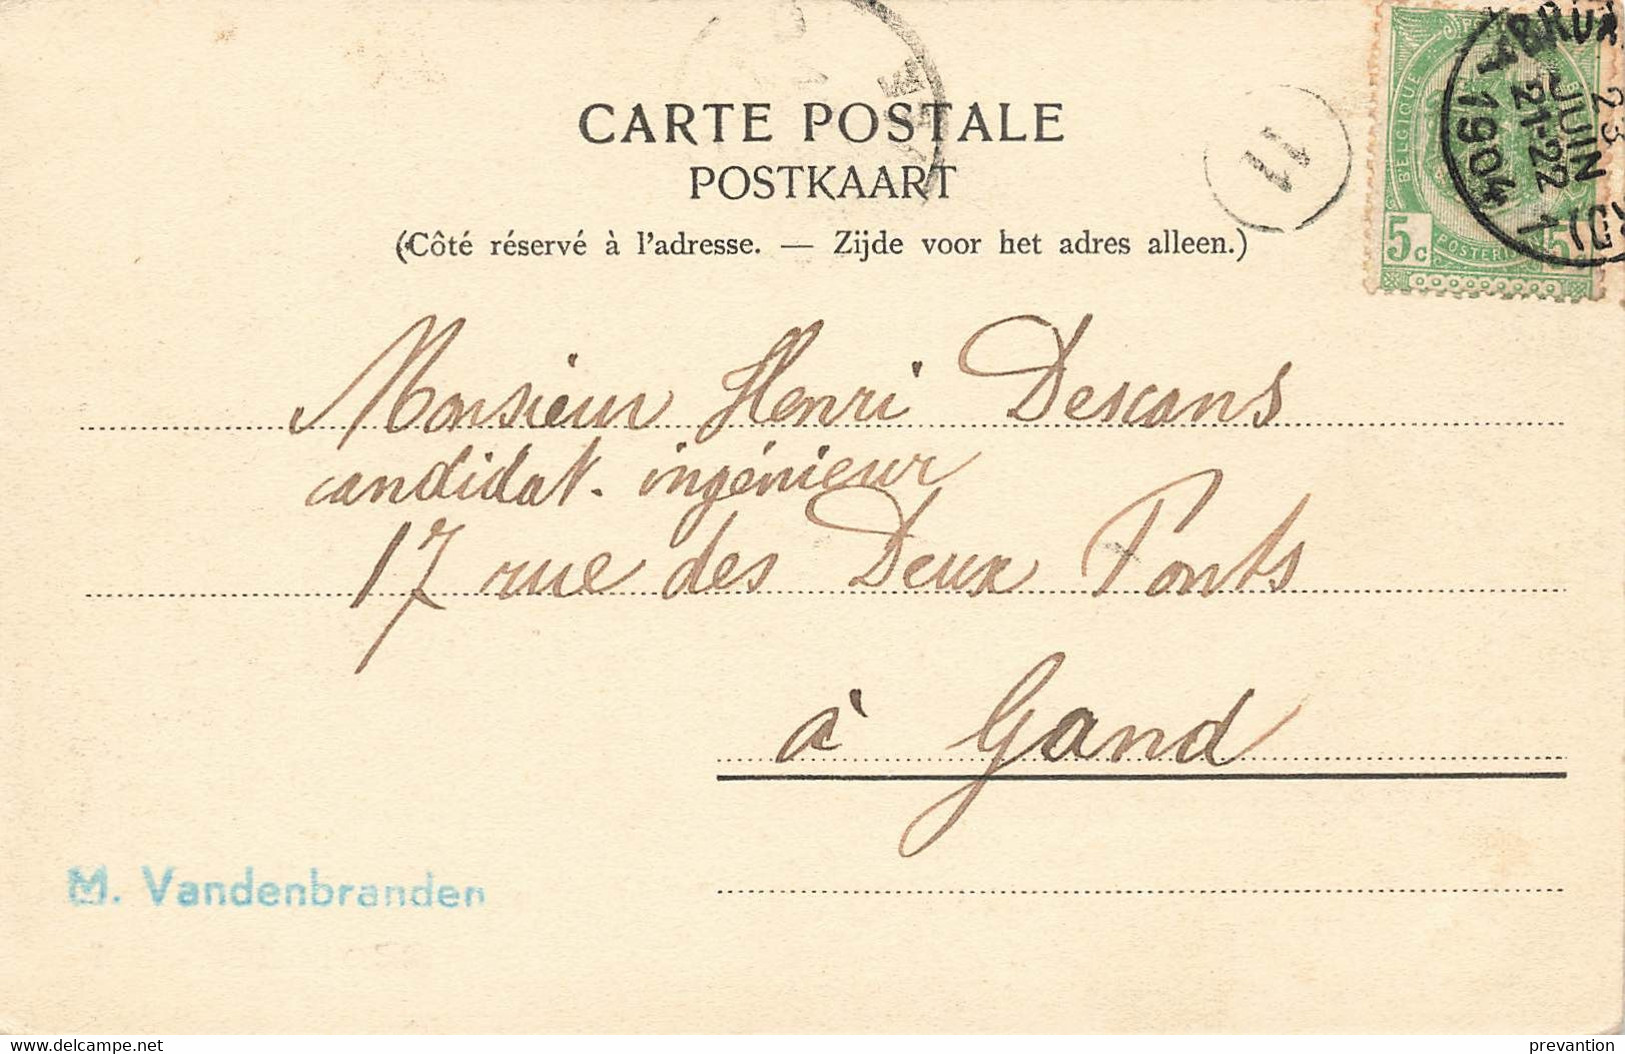 CARTE POSTALE
POSTKAART
(Côté réservé à l'adresse. — Zijde voor het adres alleen.)
11
BELGIQUE
5c
5c
23
JUIN
21-22
1904
Monsieur Henri Descans
candidat. ingénieur
17 rue des Deux Ponts
à Gand
M. Vandenbranden
delcampe.net
prevantion